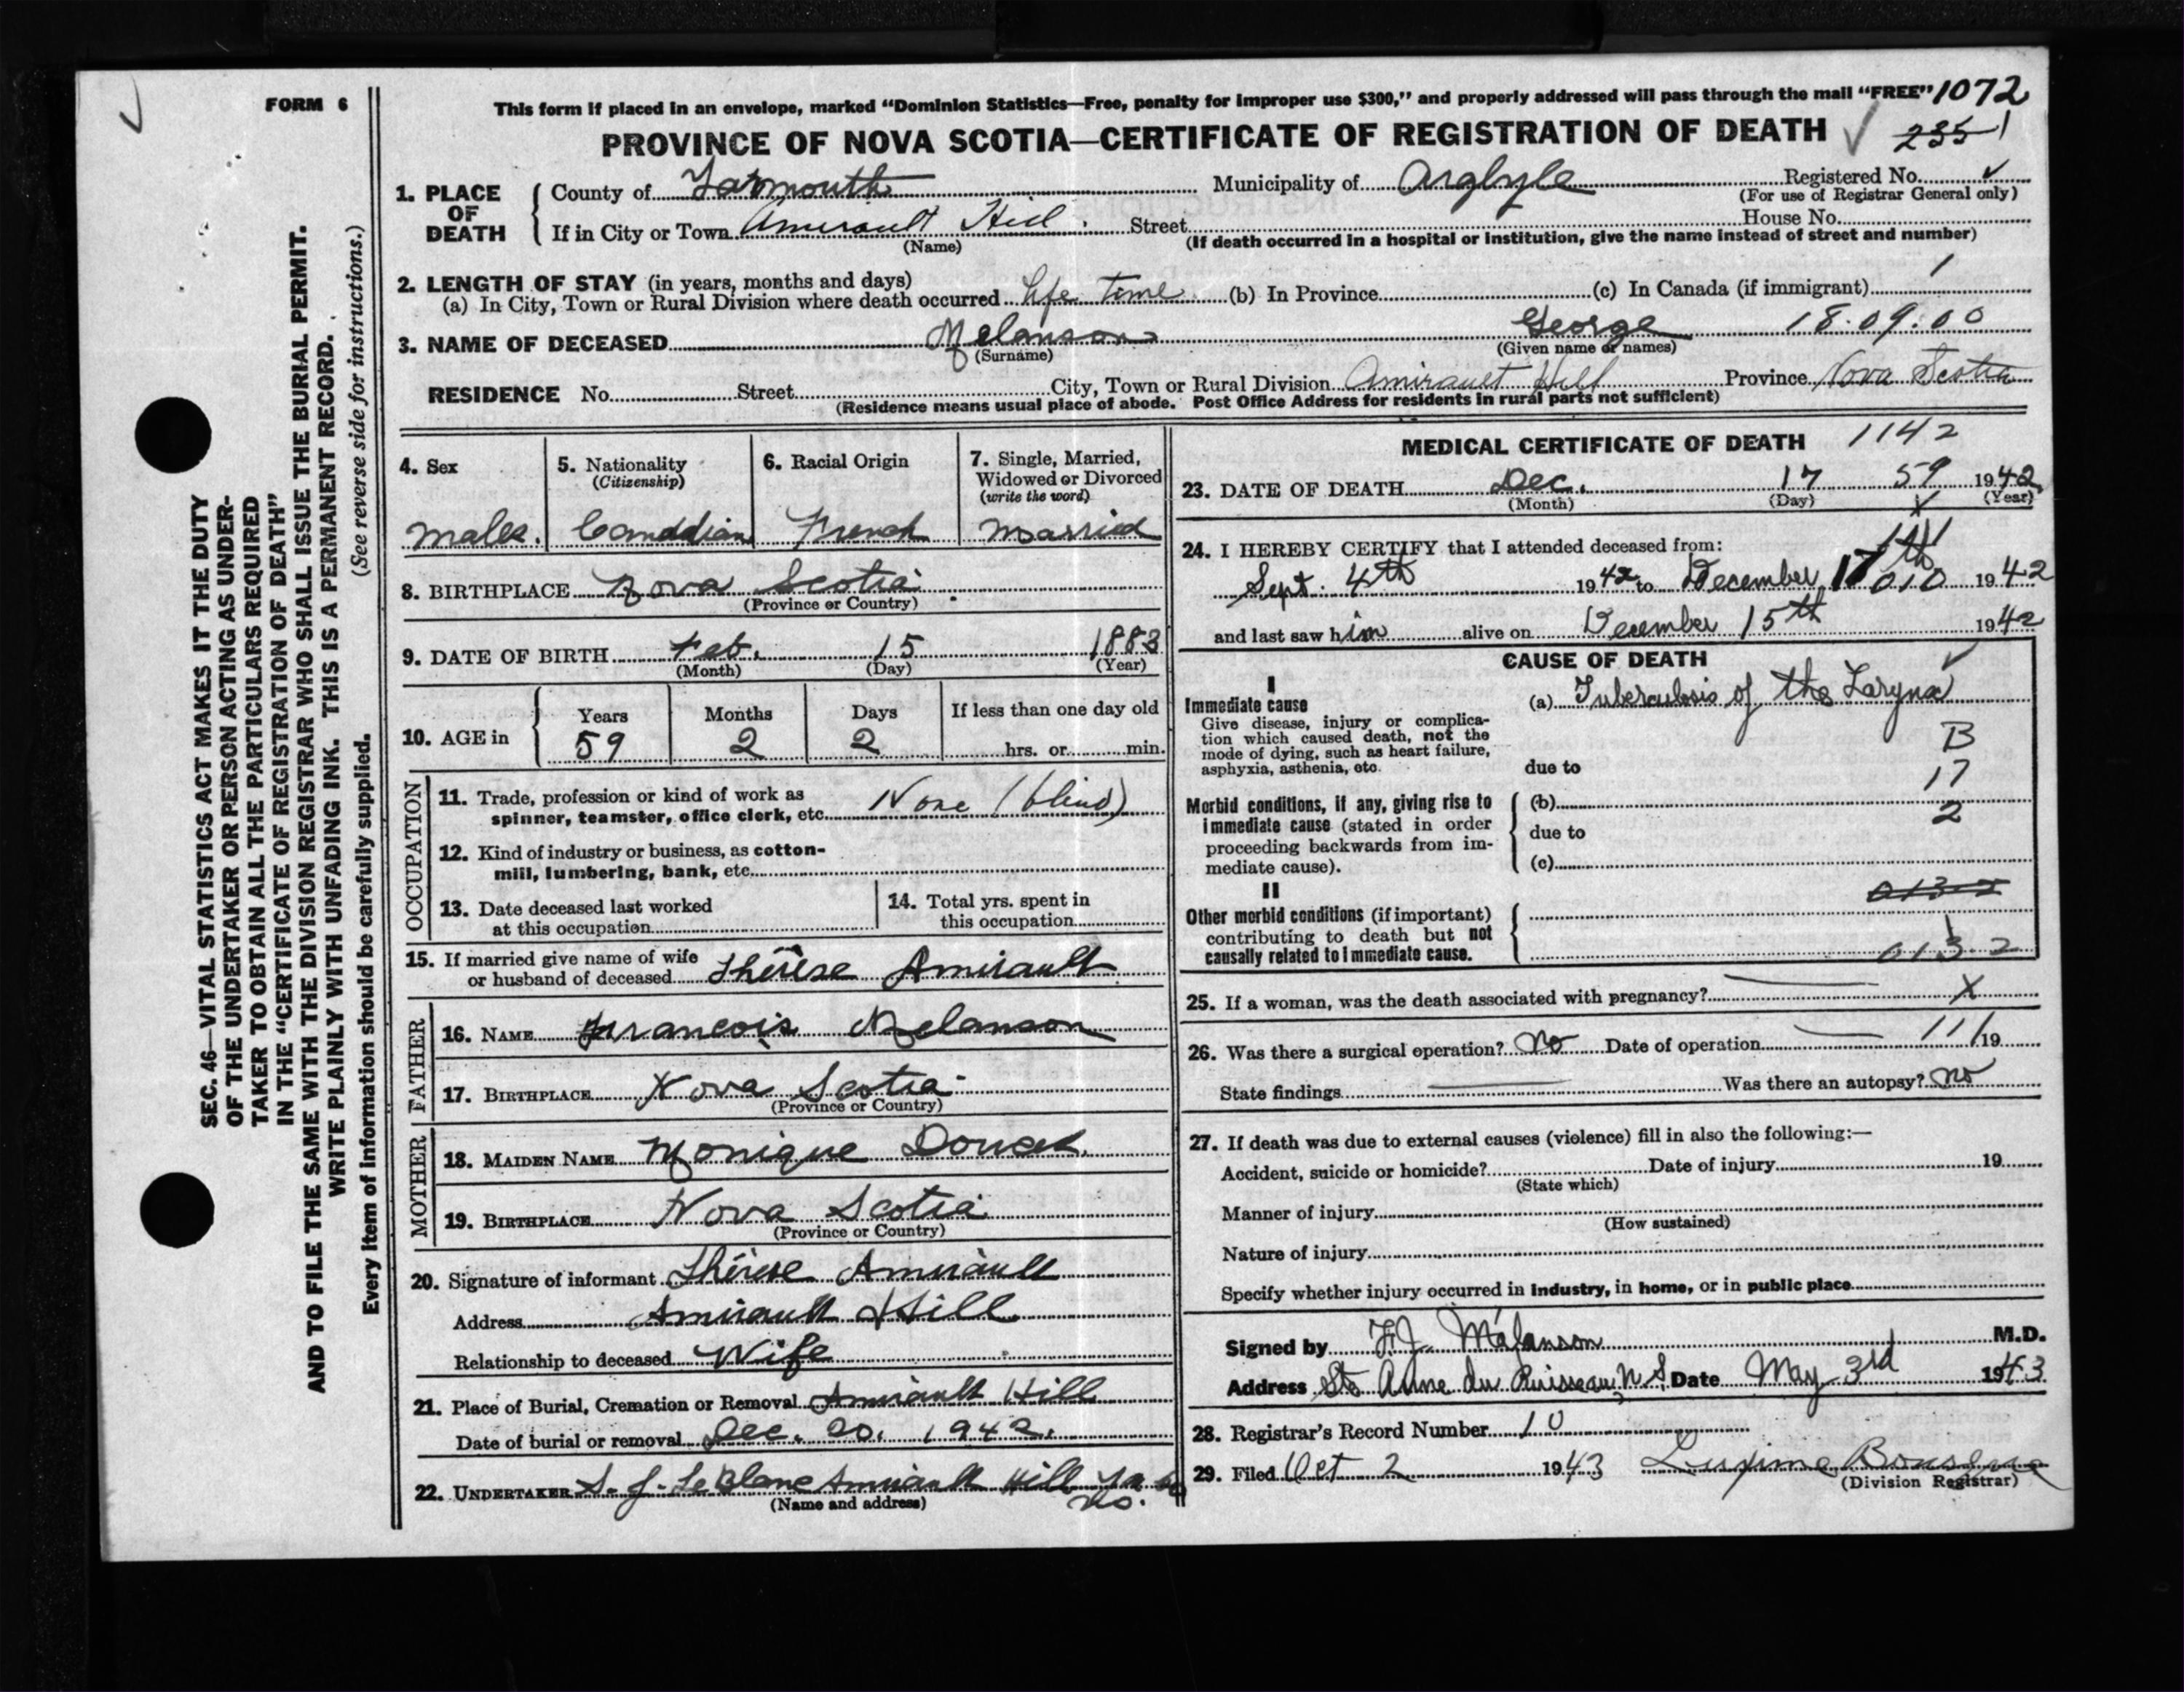 FORM 6
This form if placed in an envelope, marked “Dominion Statistics—Free, penalty for improper use $300,” and properly addressed will pass through the mail “FREE” 1072
PROVINCE OF NOVA SCOTIA—CERTIFICATE OF REGISTRATION OF DEATH
1. PLACE OF DEATH
County of Yarmouth Municipality of Arglyle Registered No.
(For use of Registrar General only)
If in City or Town Amirault Hill. Street House No.
(Name) (If death occurred in a hospital or institution, give the name instead of street and number)
2. LENGTH OF STAY (in years, months and days)
(a) In City, Town or Rural Division where death occurred life time (b) In Province (c) In Canada (if immigrant)
3. NAME OF DECEASED Melanson George 18.09.00
(Surname) (Given name or names)
RESIDENCE No. Street City, Town or Rural Division Amirault Hill Province Nova Scotia
(Residence means usual place of abode. Post Office Address for residents in rural parts not sufficient)
SEC. 46—VITAL STATISTICS ACT MAKES IT THE DUTY
OF THE UNDERTAKER OR PERSON ACTING AS UNDER-
TAKER TO OBTAIN ALL THE PARTICULARS REQUIRED
IN THE “CERTIFICATE OF REGISTRATION OF DEATH”
AND TO FILE THE SAME WITH THE DIVISION REGISTRAR WHO SHALL ISSUE THE BURIAL PERMIT.
WRITE PLAINLY WITH UNFADING INK. THIS IS A PERMANENT RECORD.
Every item of information should be carefully supplied. (See reverse side for instructions.)
4. Sex
Male.
5. Nationality
(Citizenship)
Canadian
6. Racial Origin
French
7. Single, Married,
Widowed or Divorced
(write the word)
Married
8. BIRTHPLACE Nova Scotia
(Province or Country)
9. DATE OF BIRTH Feb. 15 1883
(Month) (Day) (Year)
10. AGE in
Years Months Days If less than one day old
59 2 2 hrs. or min.
OCCUPATION
11. Trade, profession or kind of work as
spinner, teamster, office clerk, etc. None (blind)
12. Kind of industry or business, as cotton-
mill, lumbering, bank, etc.
13. Date deceased last worked
at this occupation
14. Total yrs. spent in
this occupation
15. If married give name of wife
or husband of deceased Thérèse Amirault
FATHER
16. NAME Francois Melanson
17. BIRTHPLACE Nova Scotia
(Province or Country)
MOTHER
18. MAIDEN NAME Monique Doucet
19. BIRTHPLACE Nova Scotia
(Province or Country)
20. Signature of informant Thérèse Amirault
Address Amirault Hill
Relationship to deceased Wife
21. Place of Burial, Cremation or Removal Amirault Hill
Date of burial or removal Dec. 20. 1942.
22. UNDERTAKER S. J. LeBlanc Amirault Hill
(Name and address)
MEDICAL CERTIFICATE OF DEATH 1142
23. DATE OF DEATH Dec. 17 59 1942
(Month) (Day) (Year)
24. I HEREBY CERTIFY that I attended deceased from:
Sept. 4th 1942 to December 17th 010 1942
and last saw him alive on December 15th 1942
CAUSE OF DEATH
I
Immediate cause
Give disease, injury or complica-
tion which caused death, not the
mode of dying, such as heart failure,
asphyxia, asthenia, etc.
(a) Tuberculosis of the Larynx
B
due to
17
Morbid conditions, if any, giving rise to
immediate cause (stated in order
proceeding backwards from im-
mediate cause).
(b)
2
due to
(c)
II
Other morbid conditions (if important)
contributing to death but not
causally related to immediate cause.
013 2
25. If a woman, was the death associated with pregnancy? X
26. Was there a surgical operation? No Date of operation 11/19
State findings Was there an autopsy? no
27. If death was due to external causes (violence) fill in also the following:—
Accident, suicide or homicide? Date of injury 19
(State which)
Manner of injury
(How sustained)
Nature of injury
Specify whether injury occurred in industry, in home, or in public place
Signed by F.J. Melanson M.D.
Address Ste Anne du Ruisseau, N S. Date May 3rd 1943
28. Registrar's Record Number 10
29. Filed Oct 2 1943
(Division Registrar)